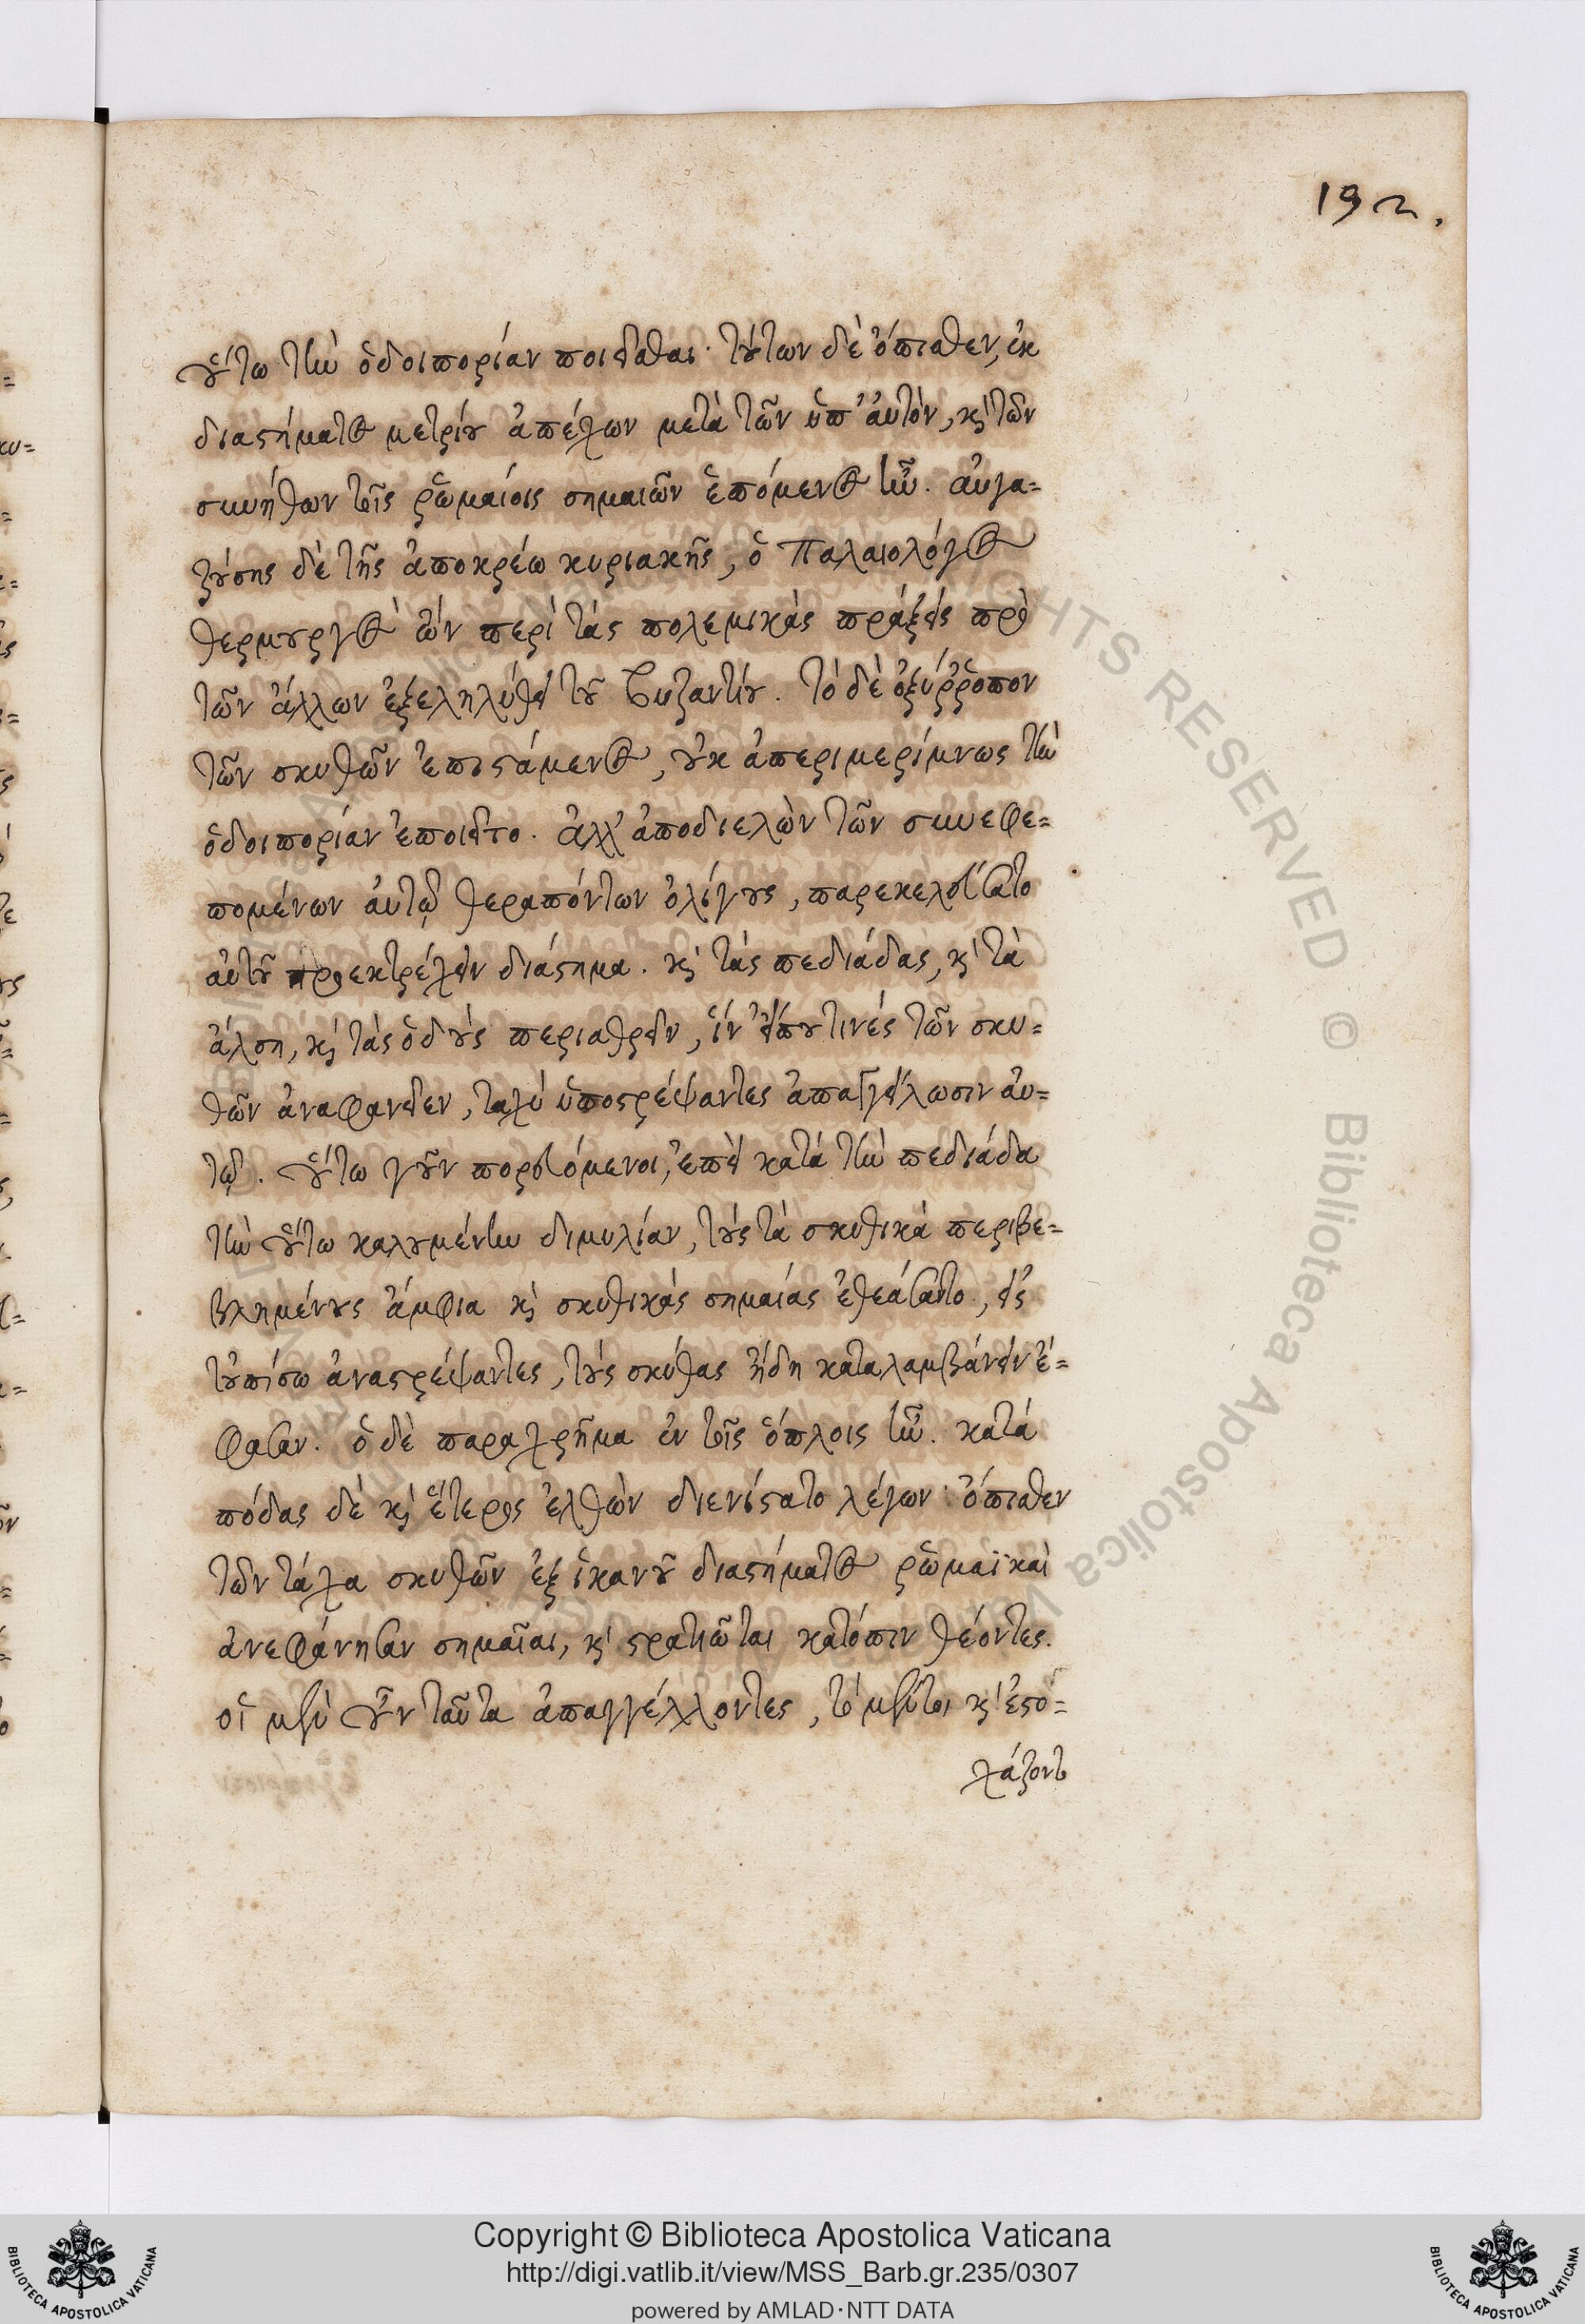 192.
οὕτω τὴν ὁδοιπορίαν ποιεῖσθαι· τούτων δὲ ὄπισθεν, ἐκ
διαστήματος μετρίου ἀπέχων μετὰ τῶν ὑπ' αὐτὸν, καὶ τῶν
συνήθων τοῖς ῥωμαίοις σημαιῶν ἑπόμενος ἦν. αὐγα=
ζούσης δὲ τῆς ἀποκρέω κυριακῆς, ὁ Παλαιολόγος
θερμουργὸς ὢν περὶ τὰς πολεμικὰς πράξεις πρὸ
τῶν ἄλλων ἐξεληλύθει τοῦ βυζαντίου. τὸ δὲ ὀξύῤῥοπον
τῶν σκυθῶν ἐπιστάμενος, οὐκ ἀπεριμερίμνως τὴν
ὁδοιπορίαν ἐποιεῖτο. ἀλλ' ἀποδιελὼν τῶν συνεφε=
πομένων αὐτῷ θεραπόντων ὀλίγους, παρεκελεύσατο
αὐτοῦ προεκτρέχειν διάστημα. καὶ τὰς πεδιάδας, καὶ τὰ
ἄλση, καὶ τὰς ὁδοὺς περιαθρεῖν, ἵν' εἴπου τινὲς τῶν σκυ=
θῶν ἀναφανεῖεν, ταχὺ ὑποστρέψαντες ἀπαγγείλωσιν αὐ=
τῷ. οὕτω γοῦν πορευόμενοι, ἐπεὶ κατὰ τὴν πεδιάδα
τὴν οὕτω καλουμένην διμυλίαν, τοὺς τὰ σκυθικὰ περιβε=
βλημένους ἄμφια καὶ σκυθικὰς σημαίας ἐθεάσαντο, εἰς
τοὐπίσω ἀναστρέψαντες, τοὺς σκύθας ἤδη καταλαμβάνειν ἔ=
φασαν. ὁ δὲ παραχρῆμα ἐν τοῖς ὅπλοις ἦν. κατὰ
πόδας δὲ καὶ ἕτερος ἐλθὼν διενίστατο λέγων· ὄπισθεν
τῶν τάχα σκυθῶν ἐξ ἱκανοῦ διαστήματος ῥωμαϊκαὶ
ἀνεφάνησαν σημαῖαι, καὶ στρατιῶται κατόπιν θέοντες.
οἱ μὲν οὖν ταῦτα ἀπαγγέλλοντες, τὸ μέντοι καὶ ἐστο=
χάζοντο
Copyright © Biblioteca Apostolica Vaticana
http://digi.vatlib.it/view/MSS_Barb.gr.235/0307
powered by AMLAD·NTT DATA